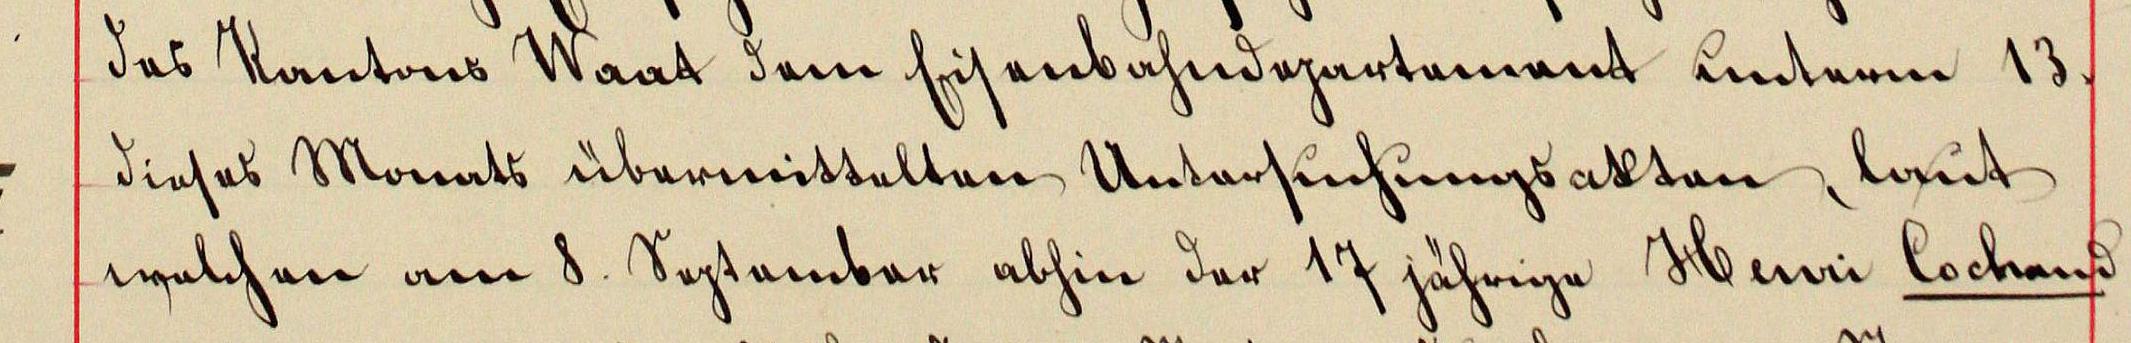 des Kantons Waat dem Eisenbahndepartement unterm 13.
dieses Monats übermittelten Untersuchungsakten, laut
welchen am 8. September abhin der 17 jährige Henri Cochand